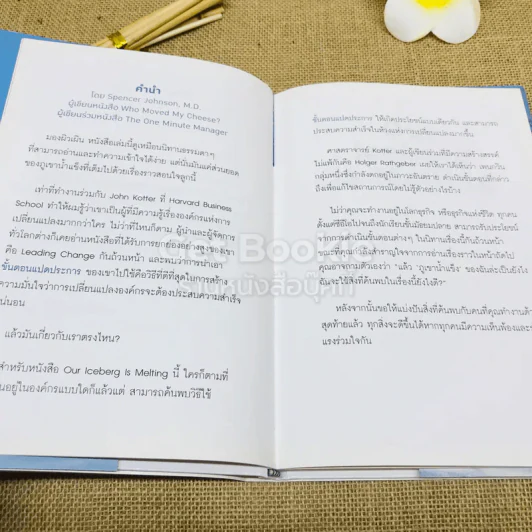 คำนำ
โดย Spencer Johnson, M.D.
ผู้เขียนหนังสือ Who Moved My Cheese?
ผู้เขียนร่วมหนังสือ The One Minute Manager
มองผิวเผิน หนังสือเล่มนี้ดูเหมือนนิทานธรรมดาๆ
ที่สามารถอ่านและทำความเข้าใจได้ง่าย แต่นั่นมันแค่ส่วนยอด
ของภูเขาน้ำแข็งที่เต็มไปด้วยเรื่องราวสอนใจลูกนี้
เท่าที่ทำงานร่วมกับ John Kotter ที่ Harvard Business
School ทำให้ผมรู้ว่าเขาเป็นผู้ที่มีความรู้เรื่ององค์กรแห่งการ
เปลี่ยนแปลงมากกว่าใคร ไม่ว่าที่ไหนก็ตาม ผู้นำและผู้จัดการ
ทั่วโลกต่างก็เคยอ่านหนังสือที่ได้รับการยกย่องอย่างสูงของเขา
คือ Leading Change กันถ้วนหน้า และพบว่าการนำเอา
ขั้นตอนแปดประการ ของเขาไปใช้คือวิธีที่ดีที่สุดในการสร้าง
ความมั่นใจว่าการเปลี่ยนแปลงองค์กรจะต้องประสบความสำเร็จ
น่นอน
แล้วมันเกี่ยวกับเราตรงไหน?
สำหรับหนังสือ Our Iceberg Is Melting นี้ ใครก็ตามที่
นอยู่ในองค์กรแบบใดก็แล้วแต่ สามารถค้นพบวิธีใช้
ขั้นตอนแปดประการ ให้เกิดประโยชน์แบบเดียวกัน และสามารถ
ประสบความสำเร็จในห้วงแห่งการเปลี่ยนแปลงมากขึ้น
ศาสตราจารย์ Kotter และผู้เขียนร่วมที่มีความสร้างสรรค์
ไม่แพ้กันคือ Holger Rathgeber เผยให้เราได้เห็นว่า เพนกวิน
กลุ่มหนึ่งซึ่งกำลังตกอยู่ในภาวะอันตราย ดำเนินขั้นตอนที่กล่าว
ถึงเพื่อแก้ไขสถานการณ์โดยไม่รู้ตัวอย่างไรบ้าง
ไม่ว่าคุณจะทำงานอยู่ในโลกธุรกิจ หรือธุรกิจแห่งชีวิต ทุกคน
ตั้งแต่ซีอีโอไปจนถึงนักเรียนชั้นมัธยมปลาย สามารถรับประโยชน์
จากการดำเนินขั้นตอนต่างๆ ในนิทานเรื่องนี้กันถ้วนหน้า
ขณะที่คุณเพลิงสำราญใจจากการอ่านเรื่องราวในหน้าถัดไป
คุณอาจถามตัวเองว่า "แล้ว 'ภูเขาน้ำแข็ง' ของฉันล่ะเป็นยังไง
ฉันจะใช้สิ่งที่ค้นพบในเรื่องนี้ยังไงดี?"
หลังจากนั้นขอให้แบ่งปันสิ่งที่ค้นพบกับคนที่คุณทำงานด้ว
สุดท้ายแล้ว ทุกสิ่งจะดีขึ้นได้หากทุกคนมีความเห็นพ้องและช่
แรงร่วมใจกัน
ร้านหนังสือบุ๊คที